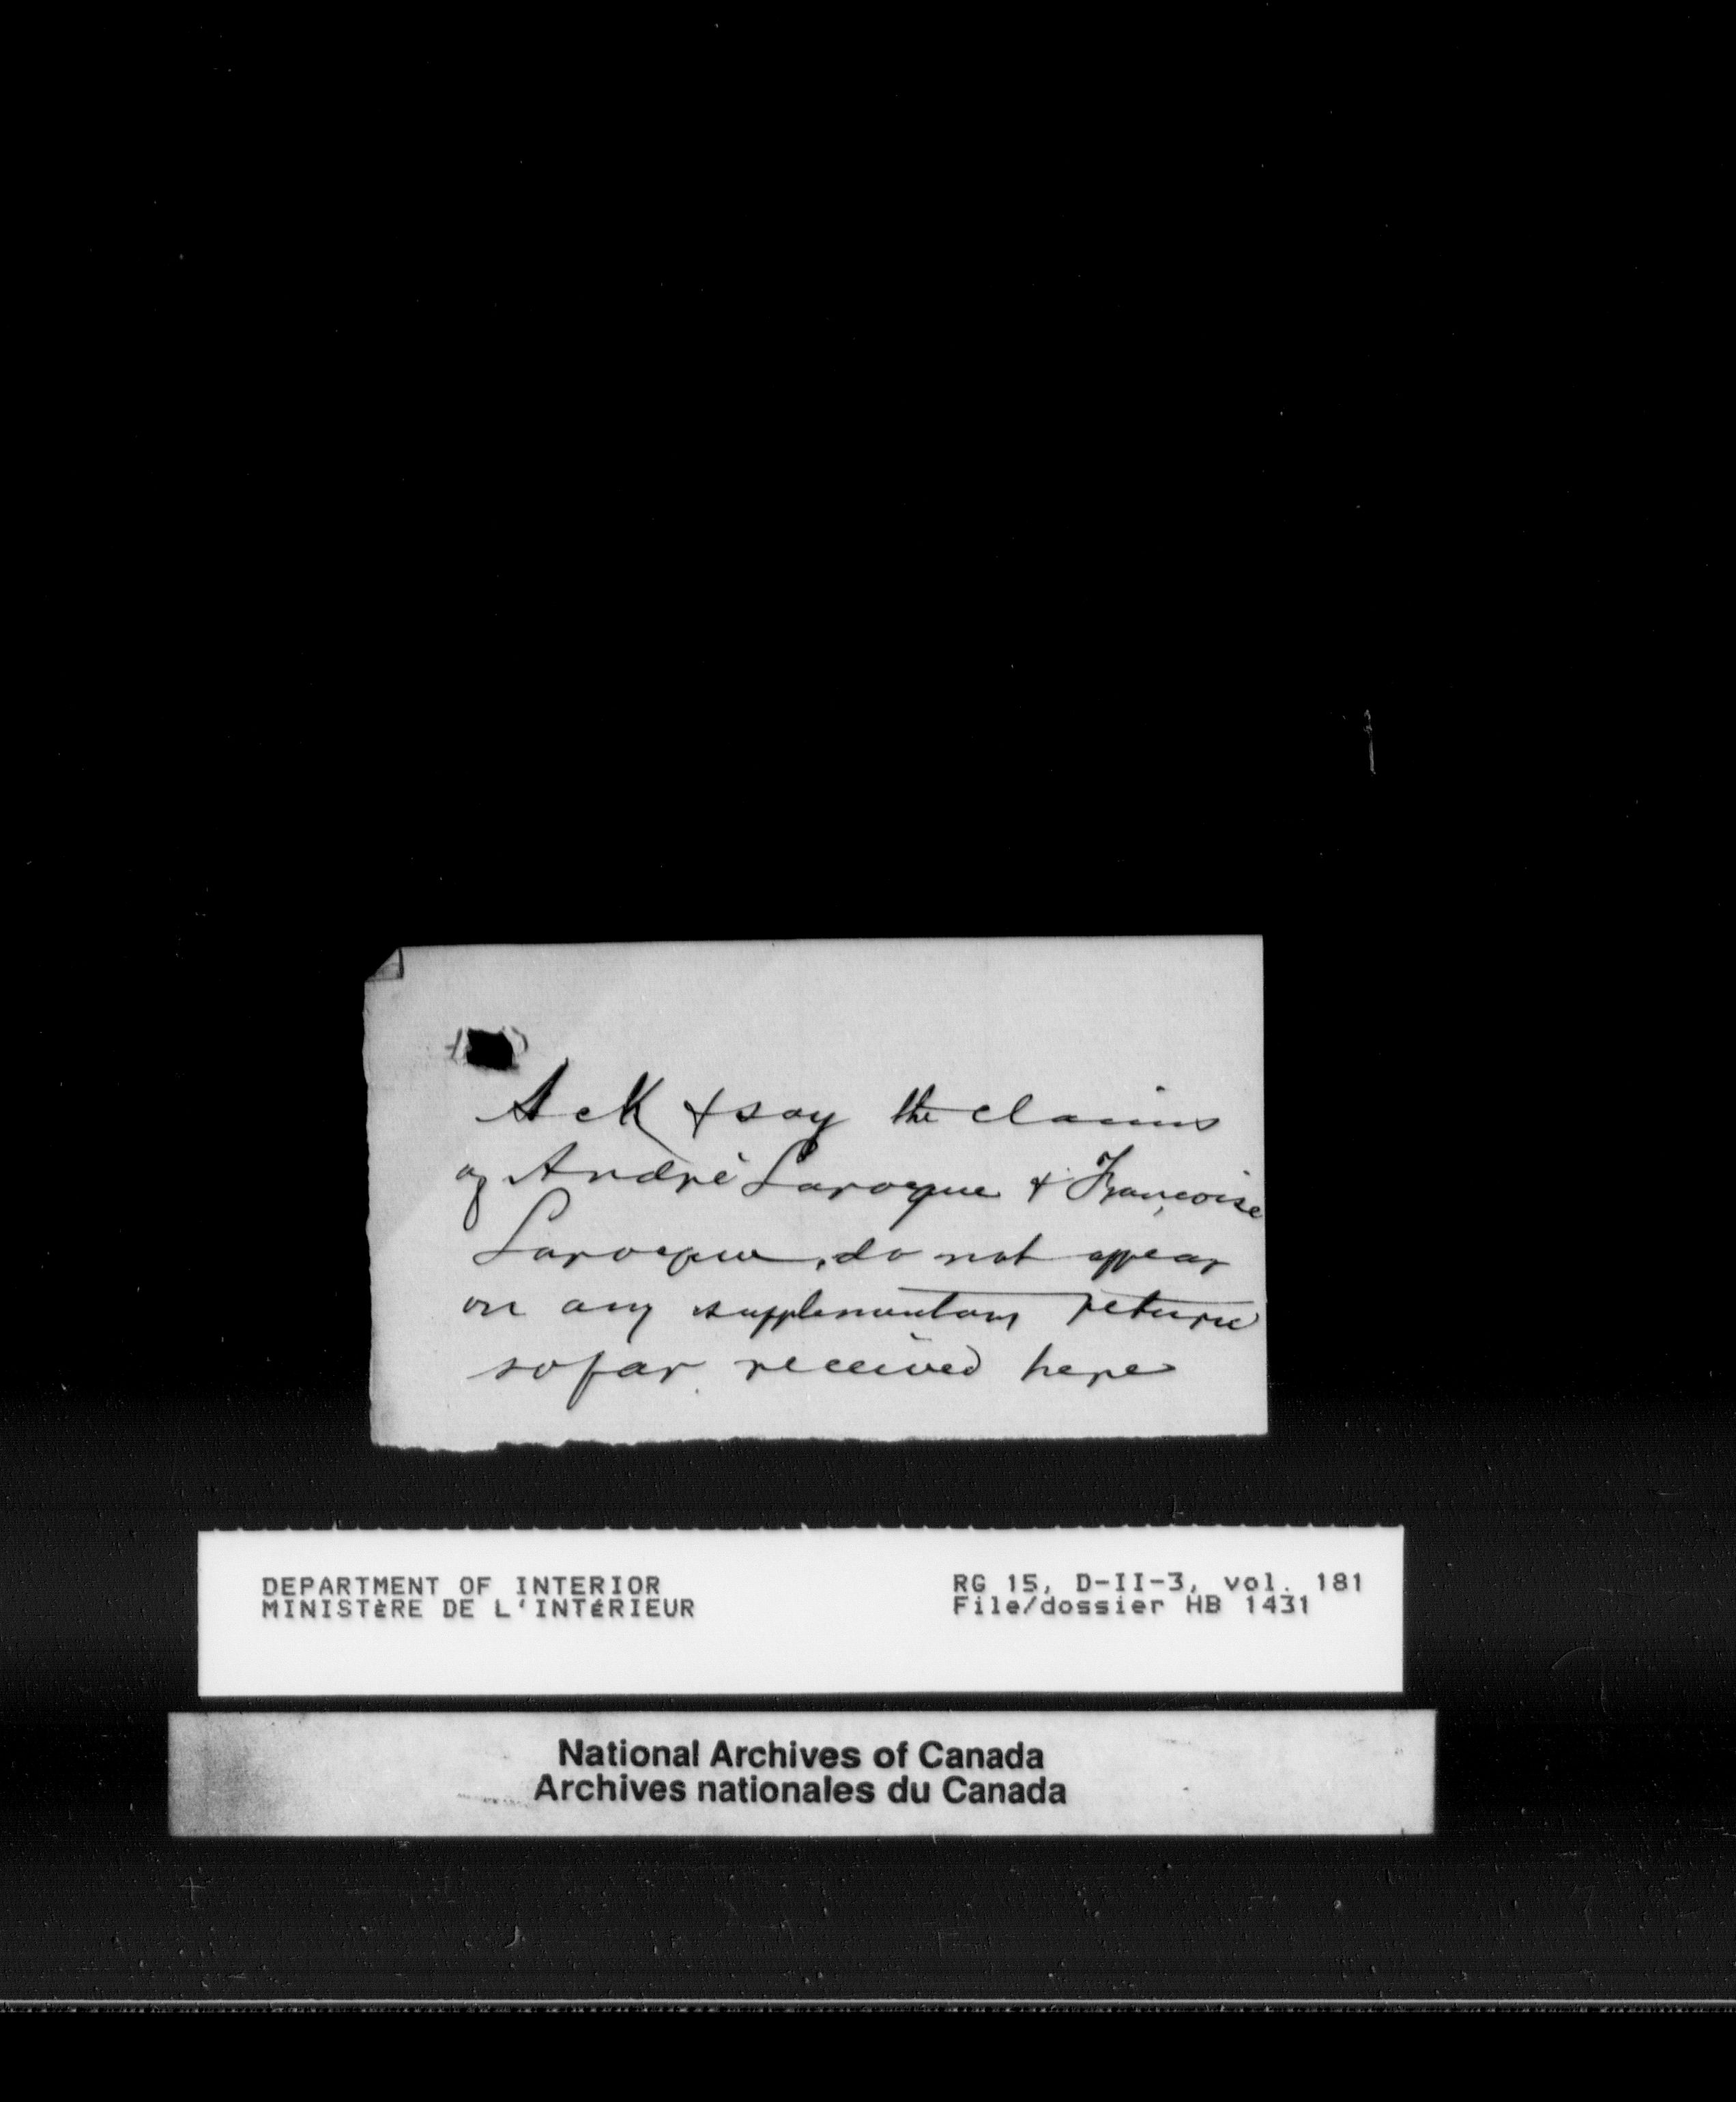 Ack & say the claims
of André Larocque & Françoise
Larocque, do not appear
on any supplementary return
so far received here
DEPARTMENT OF INTERIOR
MINISTÈRE DE L'INTÉRIEUR
RG 15, D-II-3, vol. 181
File/dossier HB 1431
National Archives of Canada
Archives nationales du Canada